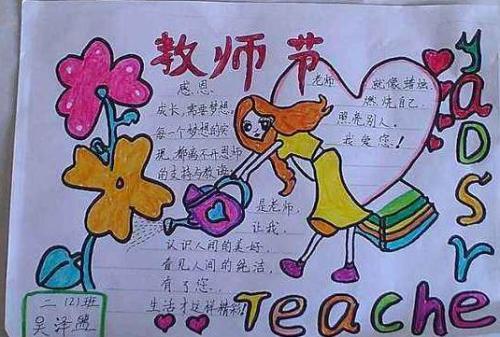 教师节
感恩
成长,需要梦想。
每一个梦想的实
现,都离不开恩师
的支持与教诲。
老师 就像蜡烛
燃烧自己,
照亮别人。
我爱您!
是老师,
让我,
认识人间的美好,
看见人间的纯洁,
有了您,
生活才这样精彩!
二(2)班
吴泽
Teache
rsDAY